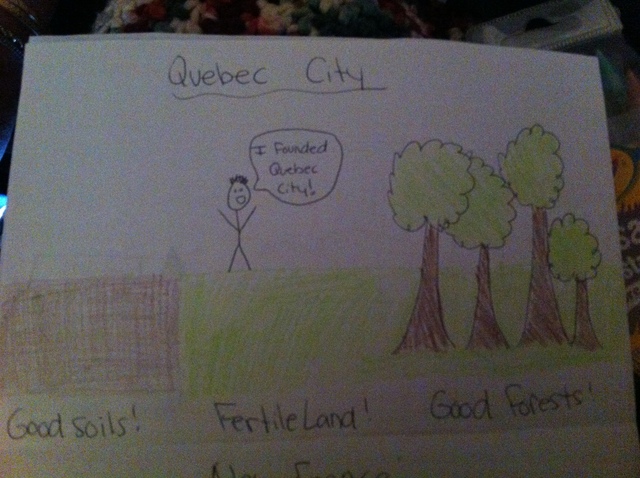 Quebec City
I Founded
Quebec
City!
Good soils!
Fertile Land!
Good Forests!
New France